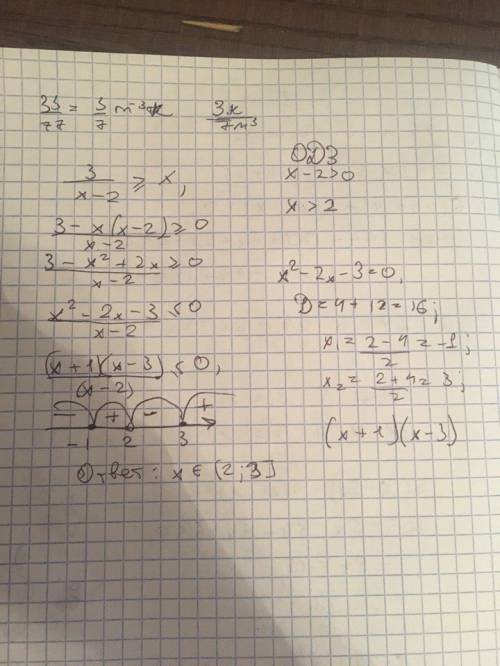 33/77 = 3/7 m⁻³ x    3x/7m³
3/(x-2) ≥ x,
(3 - x(x-2))/(x-2) ≥ 0
(3 - x² + 2x)/(x-2) ≥ 0
(x² - 2x - 3)/(x-2) ≤ 0
((x+1)(x-3))/(x-2) ≤ 0,
- + - +
-1 2 3
Ответ: x ∈ (2; 3]
ОДЗ
x - 2 > 0
x > 2
x² - 2x - 3 = 0,
D = 4 + 12 = 16;
x₁ = (2-4)/2 = -1;
x₂ = (2+4)/2 = 3;
(x+1)(x-3)